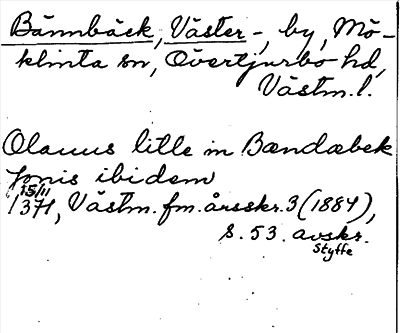 Bännbäck, Väster-, by, Mö-
klinta sn, Övertjurbo hd,
Västm. l.
Olauus lille in Bændæbek
Jonis ibidem
15/11
1371, Västm. fm. årsskr. 3 (1884),
s. 53. avskr.
Styffe